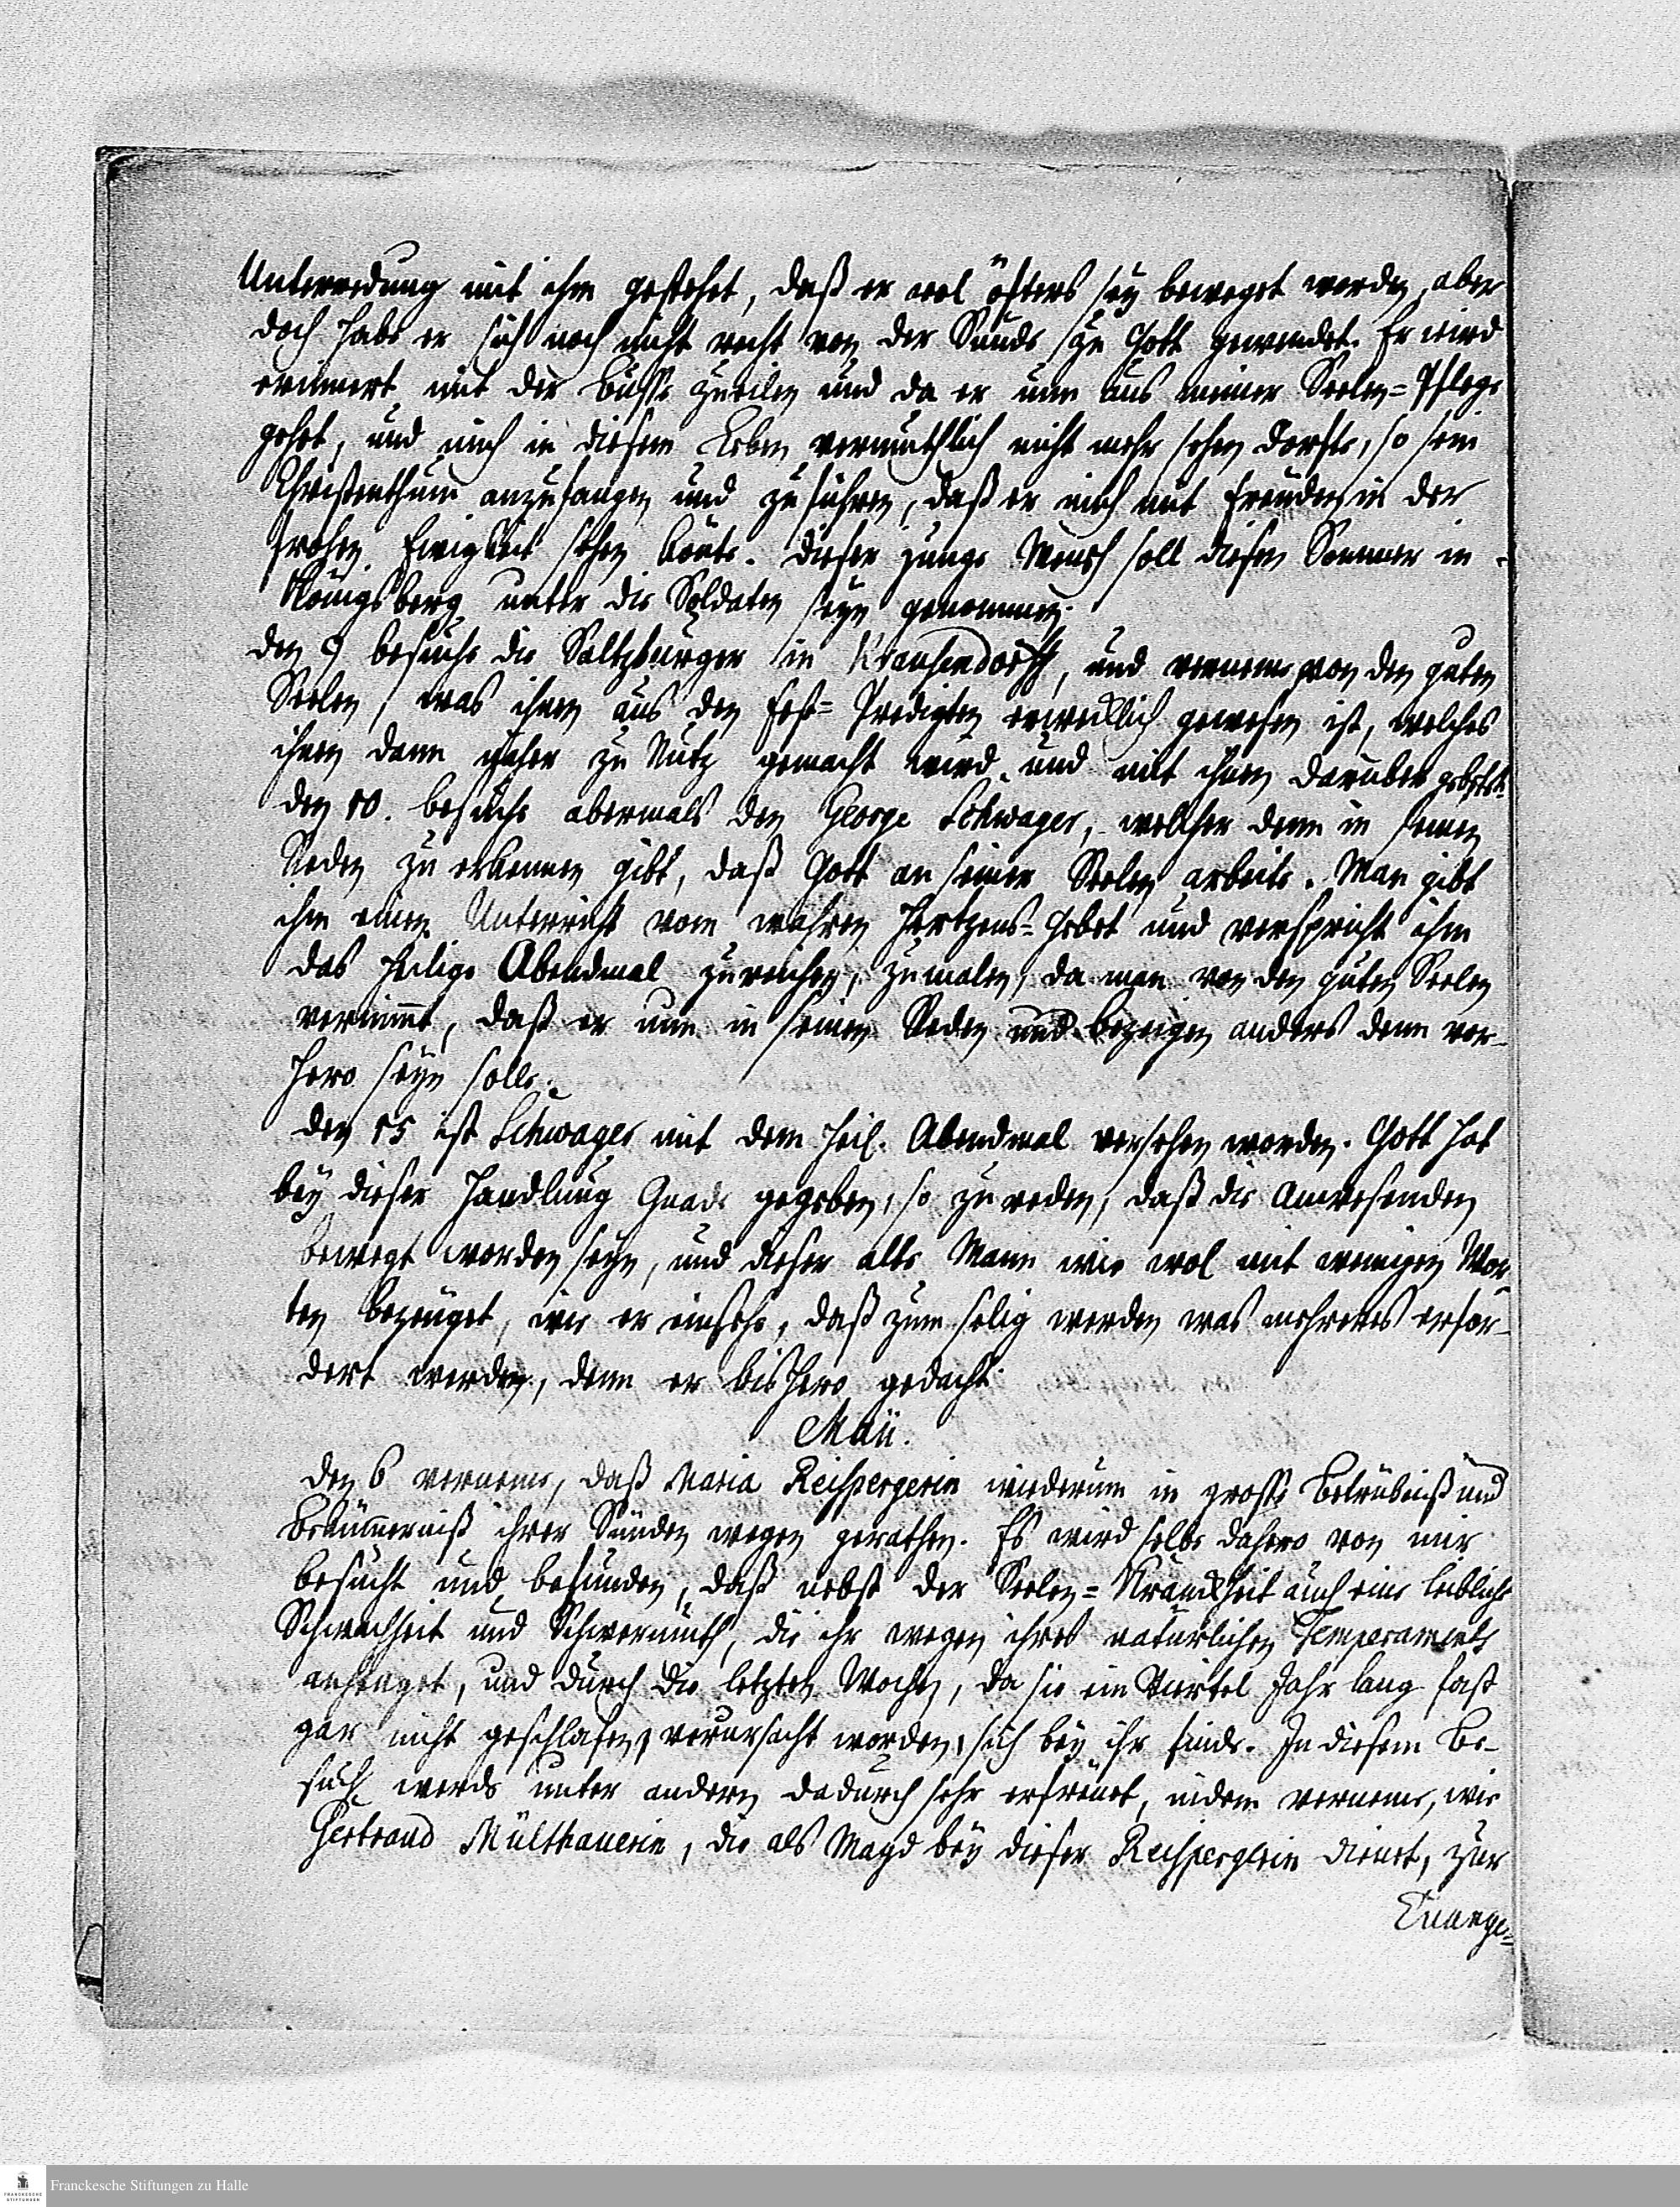 Unterredung mit ihm gestehet, daß er wol öfters sey beweget worden, aber
doch habe er sich noch nicht recht von der Sünde zu Gott gewendet. Er wird
erinnert mit der Busse zu eilen und da er nun aus meiner Seelen=Pflege
gehet, und mich in diesem Leben vermuthlich nicht mehr sehen dorfte, so sein
Christenthum anzufangen und zu führen, daß er mich mit Freuden in der
frohen Ewigkeit sehen könte. Dieser junge Mensch soll diesen Sommer in
Königsberg unter die Soldaten seyn genommen.
den 9 besuche die Saltzburger in Krausendorff, und verneme von den guten
Seelen, was ihnen aus den Fest=Predigten erwecklich gewesen ist, welches
ihnen dann näher zu Nutz gemacht wird und mit ihnen darüber gebetet.
den 10. besuche abermals den George Schwager, welcher denn in seinen
Reden zu erkennen gibt, daß Gott an seiner Seelen arbeite. Man gibt
ihm einen Unterricht vom wahren Hertzens=Gebet und verspricht ihm
das heilige Abendmal zu reichen, zumalen, da man von den guten Seelen
vernimmt, daß er nun in seinen Reden und bezeigen anders denn vor-
hero seyn solle.
den 15 ist Schwager mit dem heil. Abendmal versehen worden. Gott hat
bey dieser Handlung Gnade gegeben, so zu reden, daß die Anwesenden
bewegt worden seyn, und dieser alte Mann wie wol mit wenigen Wor
ten bezeuget, wie er einsehe, daß zum selig werden was mehreres erfor-
dert werden, denn er bishero gedacht.
Maii.
den 6 verneme, daß Maria Reispergerin wiederum in grosse Betrübniß und
Bekümmerniß ihrer Sünden wegen gerathen. Es wird selbe dahero von mir
besucht und befunden, daß nebst der Seelen=Kranckheit auch eine leibliche
Schwachheit und Schwermuth, die ihr wegen ihres natürlichen Temperaments
anhenget, und durch die letzten Wochen, da sie ein Viertel Jahr lang fast
gar nicht geschlafen, verursacht worden, sich bey ihr finde. In diesem Be-
such werde unter andern dadurch sehr erfreuet, indem verneme, wie
Gertraud Mülthauerin, die als Magd bey dieser Reispergerin dienet, zur
Euange=
Franckesche Stiftungen zu Halle